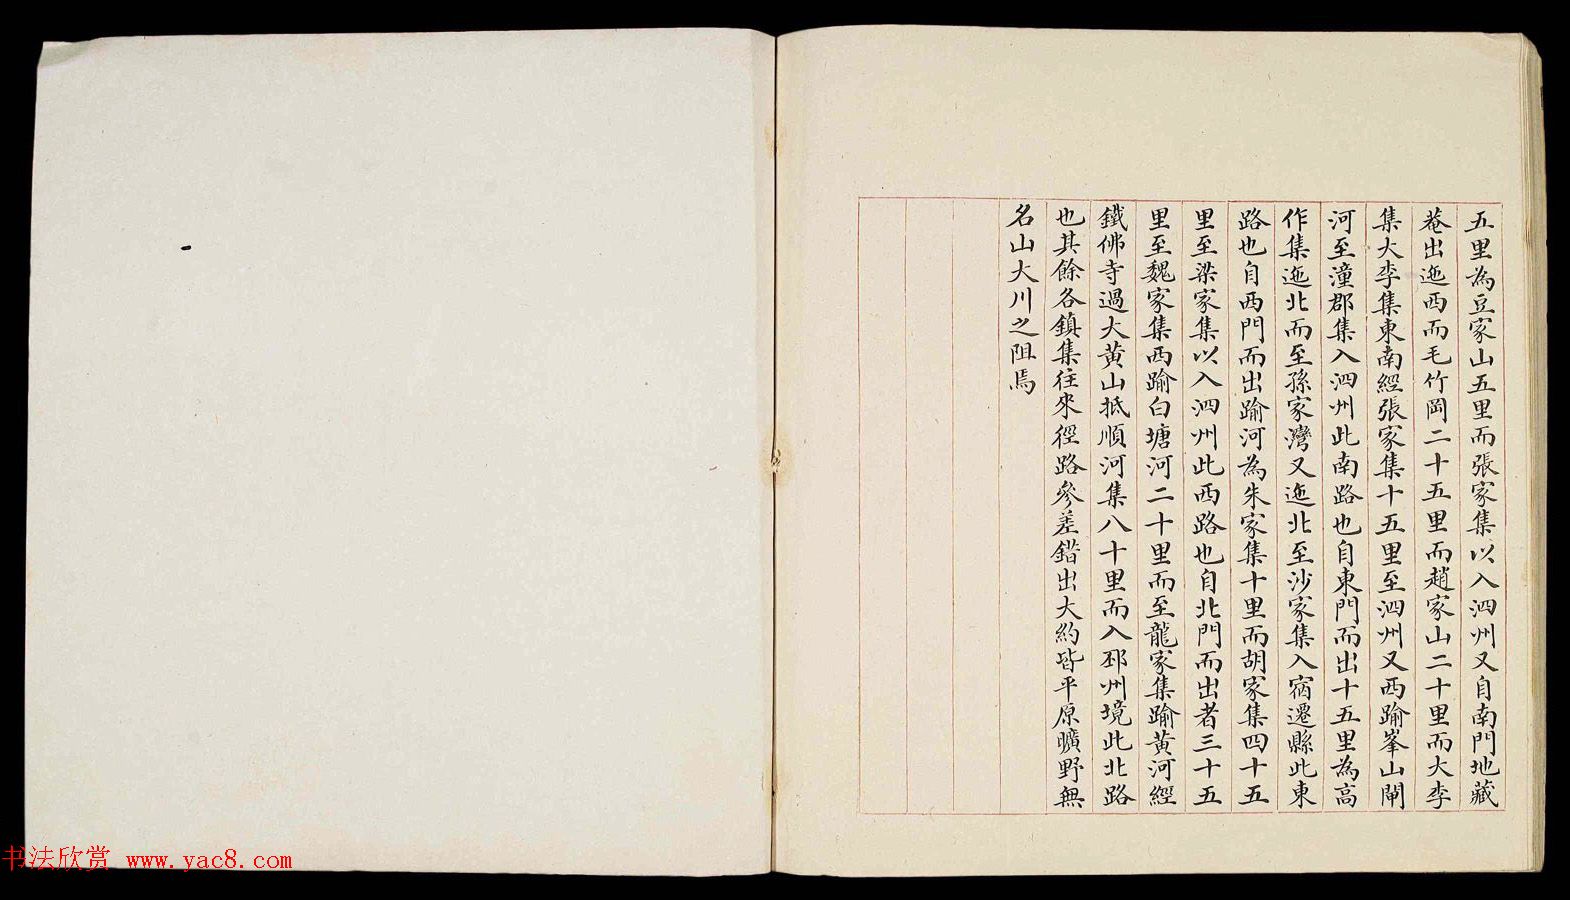 五里為豆家山五里而張家集以入泗州又自南門地藏
菴出迤西而毛竹岡二十五里而趙家山二十里而大李
集大李集東南經張家集十五里至泗州又西踰峯山閘
河至潼郡集入泗州此南路也自東門而出十五里為高
作集迤北而至孫家灣又迤北至沙家集入宿遷縣此東
路也自西門而出踰河為朱家集十里而胡家集四十五
里至梁家集以入泗州此西路也自北門而出者三十五
里至魏家集西踰白塘河二十里而至龍家集踰黃河經
鐵佛寺過大黃山抵順河集八十里而入邳州境此北路
也其餘各鎮集往來徑路參差錯出大約皆平原曠野無
名山大川之阻焉
书法欣赏 www.yac8.com